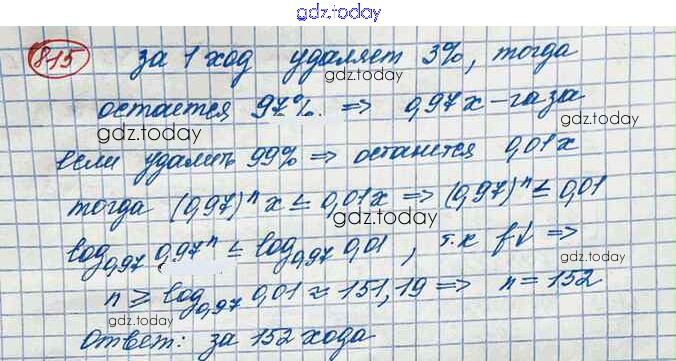 gdz.today
815 за 1 ход удаляет 3%, тогда
gdz.today
остается 97% ⇒ 0,97x – газа
gdz.today
gdz.today
если удалить 99% ⇒ останется 0,01x
gdz.today
тогда (0,97)ⁿ x ≤ 0,01x ⇒ (0,97)ⁿ ≤ 0,01
gdz.today
log₀,₉₇ 0,97ⁿ ≤ log₀,₉₇ 0,01, т.к f↓ ⇒
gdz.today
n ≥ log₀,₉₇ 0,01 ≈ 151,19 ⇒ n = 152
gdz.today
gdz.today
Ответ: за 152 хода